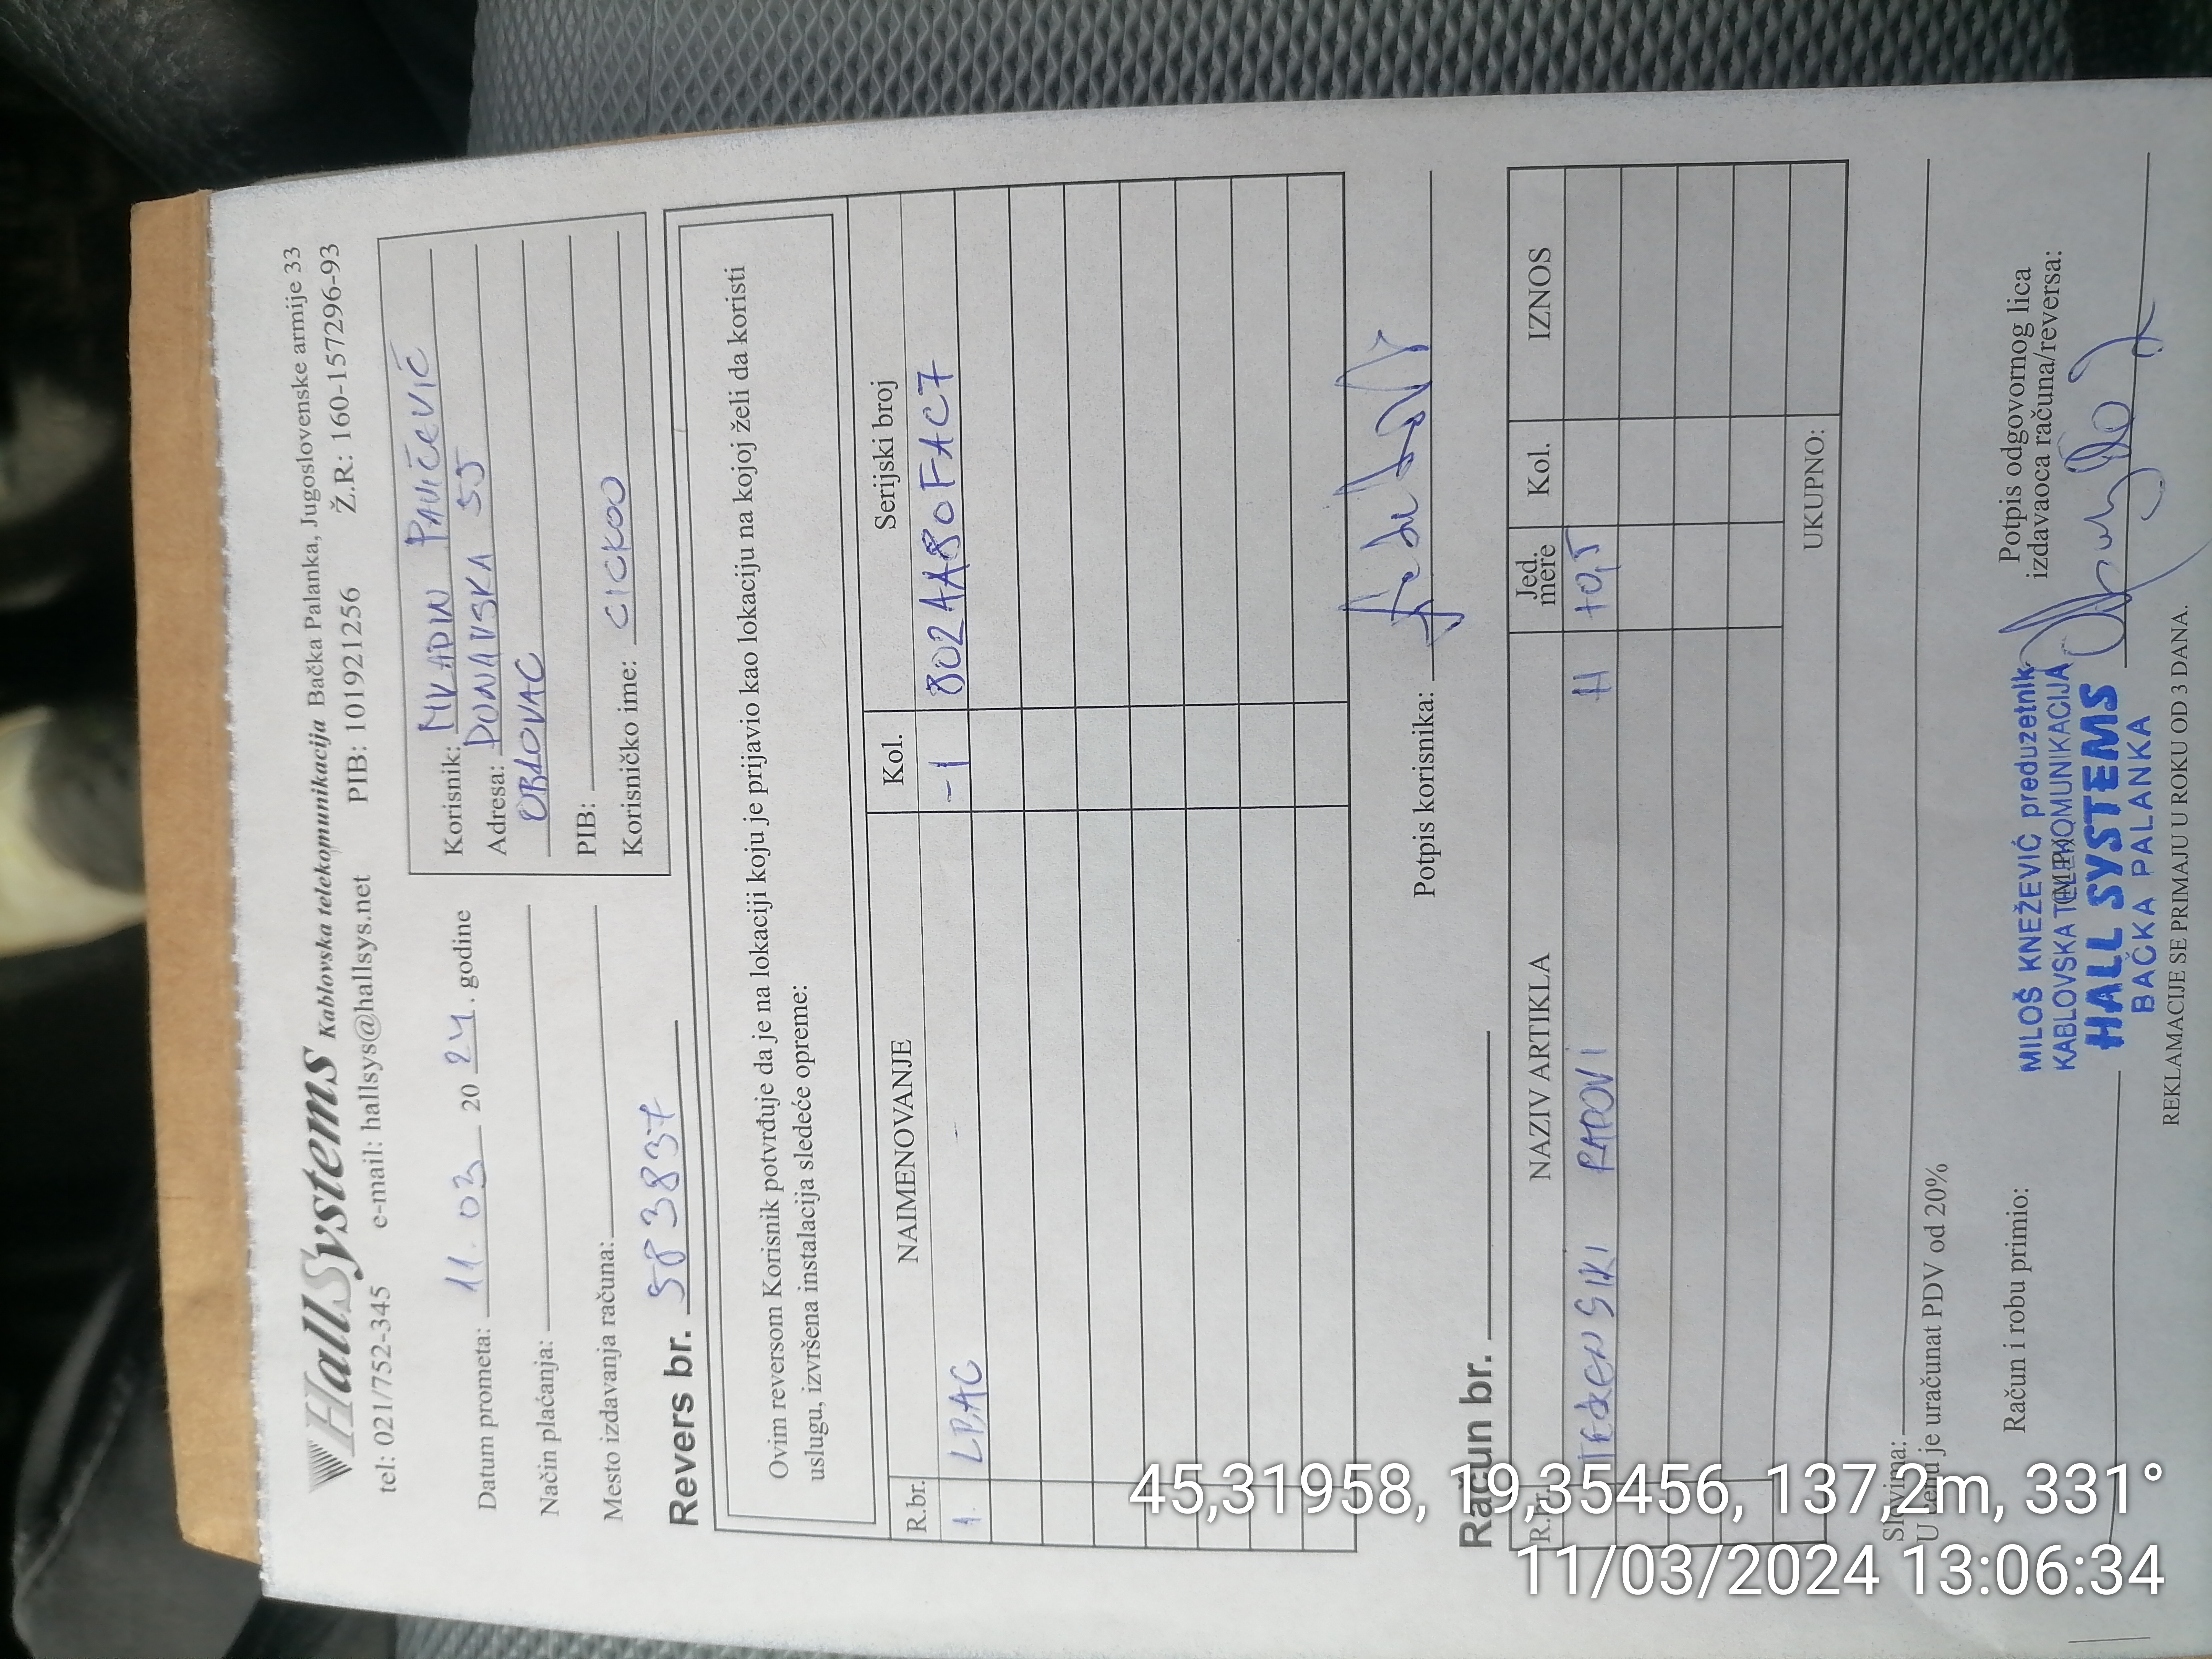 HallSystems Kablovska telekomunikacija Bačka Palanka, Jugoslovenske armije 33
tel: 021/752-345 e-mail: hallsys@hallsys.net PIB: 101921256 Ž.R: 160-157296-93
Datum prometa: 11. 03 2024. godine
Način plaćanja:
Mesto izdavanja računa:
Korisnik: MLADIN PAVIČEVIĆ
Adresa: DUNAVSKA 55
OBROVAC
PIB:
Korisničko ime: CICKOO
Revers br. 583837
Ovim reversom Korisnik potvrđuje da je na lokaciji koju je prijavio kao lokaciju na kojoj želi da koristi
uslugu, izvršena instalacija sledeće opreme:
R.br. NAIMENOVANJE Kol. Serijski broj
1. LBAC -1 802AA80FAC7
Potpis korisnika:
Račun br.
R.br. NAZIV ARTIKLA Jed. mere Kol. IZNOS
TERENSKI RADOVI H +0,5
UKUPNO:
Slovima:
U cenu je uračunat PDV od 20%
Račun i robu primio:
(M.P.)
Potpis odgovornog lica
izdavaoca računa/reversa:
MILOŠ KNEŽEVIĆ preduzetnik
KABLOVSKA TELEKOMUNIKACIJA
HALL SYSTEMS
BAČKA PALANKA
REKLAMACIJE SE PRIMAJU U ROKU OD 3 DANA.
45,31958, 19,35456, 137,2m, 331°
11/03/2024 13:06:34